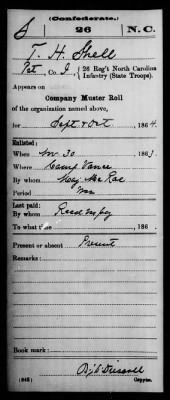 (Confederate.)
S | 26 | N. C.
T. H. Shell
Pvt, Co. I, 26 Reg't North Carolina
Infantry (State Troops).
Appears on
Company Muster Roll
of the organization named above,
for Sept & Oct, 1864.
Enlisted:
When Nov 30, 1863.
Where Camp Vance
By whom Maj. McRae
Period War
Last paid:
By whom
To what time , 186 .
Present or absent Present
Remarks:
Book mark:
(642)
Copyist.